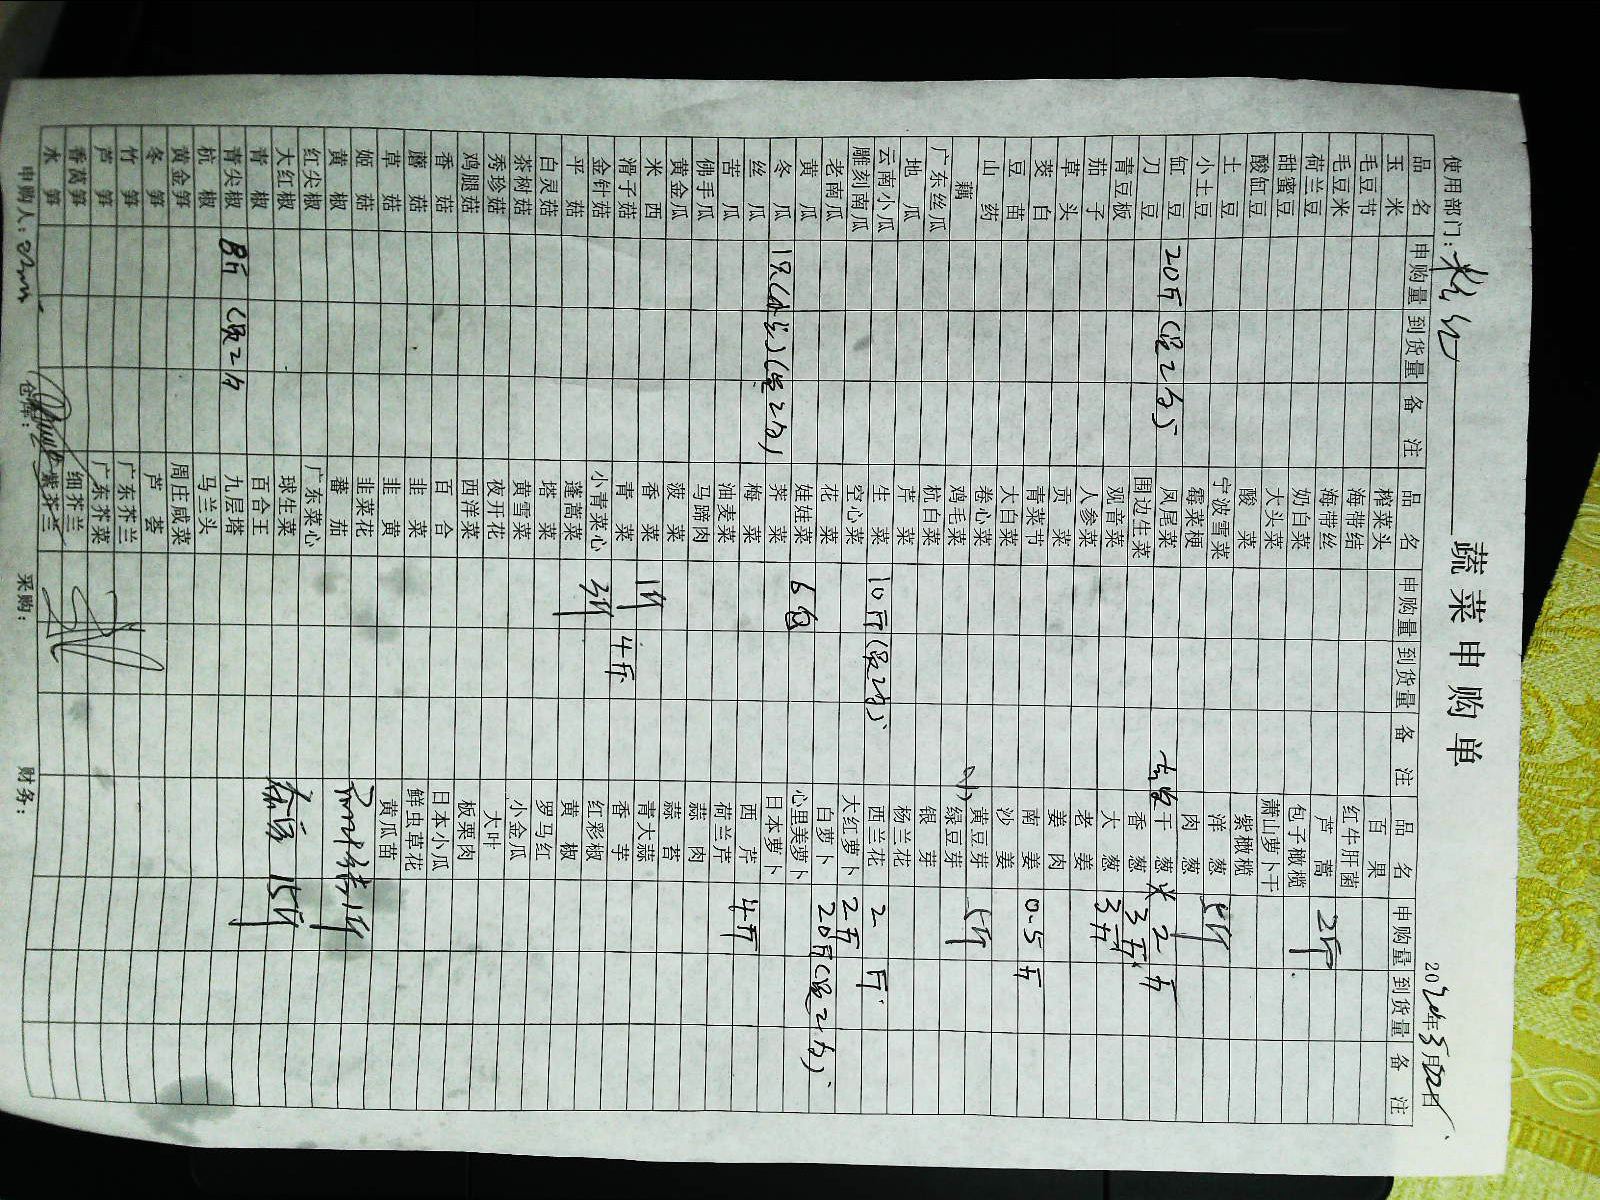 蔬菜申购单
使用部门: 2020年5月 日
品名 申购量 到货量 备注 品名 申购量 到货量 备注 品名 申购量 到货量 备注
玉米 榨菜头 百果
毛豆节 海带结 红牛肝菌
毛豆米 海带丝 芦蒿 2斤
荷兰豆 奶白菜 包子橄榄
甜蜜豆 大头菜 萧山萝卜干
酸缸豆 酸菜 紫橄榄
土豆 宁波雪菜 洋葱 5斤
小土豆 霉菜梗 肉葱
缸豆 20斤(温2分) 凤尾菜 干葱 2斤
刀豆 围边生菜 香葱 3斤
青豆板 观音菜 大葱 3斤
茄子 人参菜 老姜
草头 贡菜 姜肉
茭白 青菜节 南姜 0.5斤
豆苗 大白菜 沙姜
山药 卷心菜 黄豆芽 5斤
藕 鸡毛菜 绿豆芽
广东丝瓜 杭白菜 银芽
地瓜 芹菜 杨兰花
云南小瓜 生菜 10斤 西兰花 2斤
雕刻南瓜 空心菜 大红萝卜 2斤
老南瓜 花菜 白萝卜 20斤
黄瓜 娃娃菜 6包 心里美萝卜
冬瓜 1只 荠菜 日本萝卜
丝瓜 梅菜 西芹 4斤
苦瓜 油麦菜 荷兰芹
佛手瓜 马蹄肉 蒜肉
黄金瓜 菠菜 蒜苔
米西 香菜 1斤 青大蒜
滑子菇 青菜 4斤 香芋
金针菇 小青菜心 3斤 红彩椒
平菇 蓬蒿菜 黄椒
白灵菇 塔菜 罗马红
茶树菇 黄雪菜 小金瓜
秀珍菇 夜开花 大叶
鸡腿菇 西洋菜 板栗肉
香菇 百合 日本小瓜
蘑菇 韭菜 鲜虫草花
草菇 韭黄 黄瓜苗
姬菇 韭菜花
黄椒 蕃茄 1斤
红尖椒 广东菜心
大红椒 球生菜
青椒 百合王 15斤
青尖椒 8斤 九层塔
杭椒 马兰头
黄金笋 周庄咸菜
冬笋 芦荟
竹笋 广东芥兰
芦笋 广东芥菜
香莴笋 细芥兰
水笋 紫芥兰
申购人: 仓库: 采购: 财务: